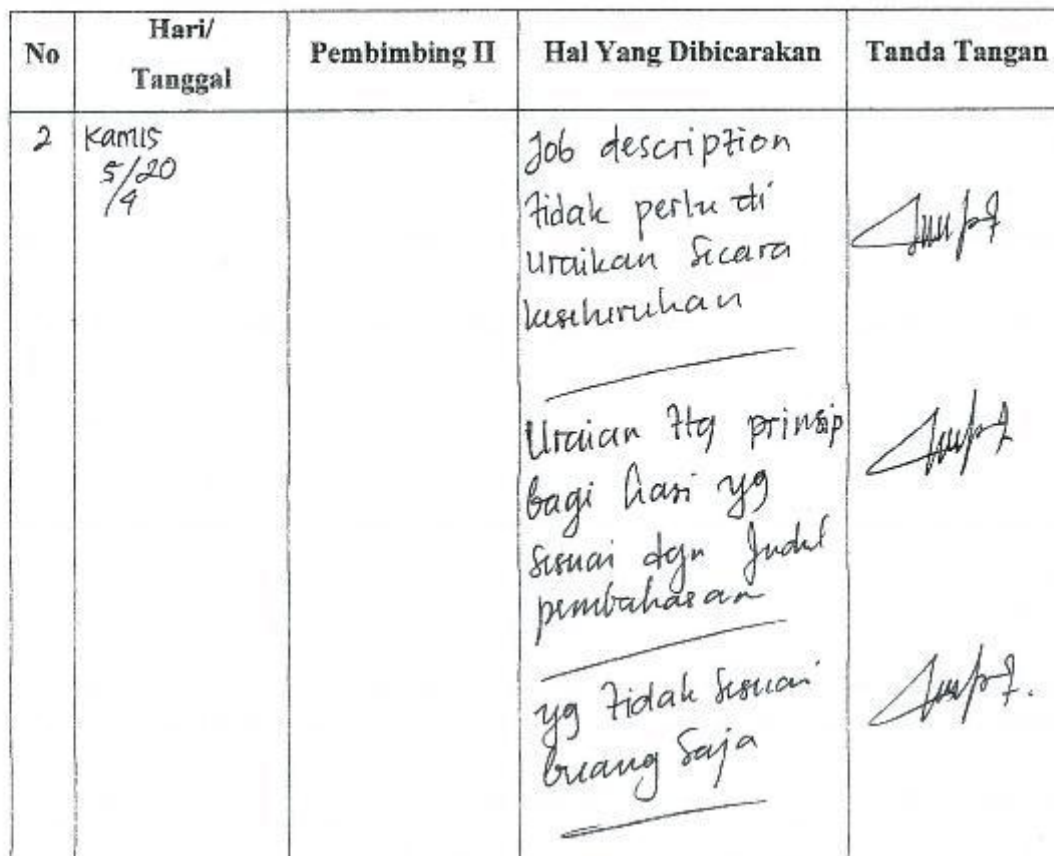 No Hari/ Tanggal Pembimbing II Hal Yang Dibicarakan Tanda Tangan
2 Kamis 5/20
/4
Job description
tidak perlu di
uraikan secara
keseluruhan
Uraian ttg prinsip
bagi hasi yg
sesuai dgn Judul
pembahasan
yg tidak sesuai
buang saja